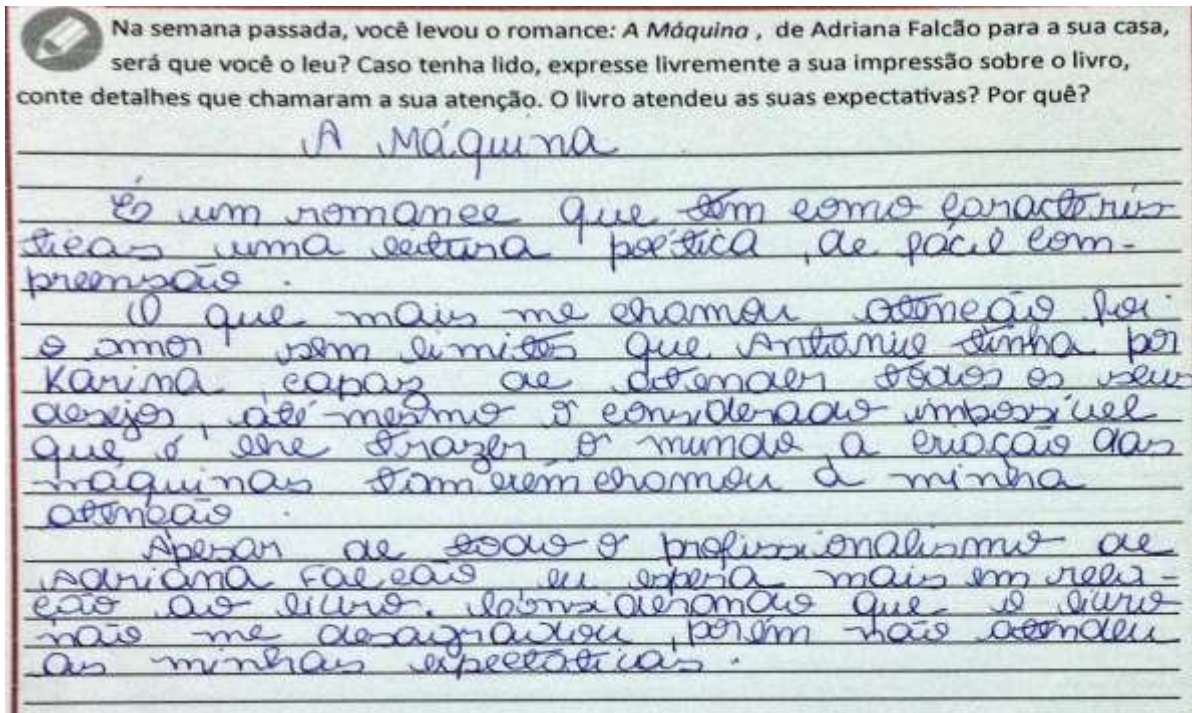 Na semana passada, você levou o romance: A Máquina , de Adriana Falcão para a sua casa,
será que você o leu? Caso tenha lido, expresse livremente a sua impressão sobre o livro,
conte detalhes que chamaram a sua atenção. O livro atendeu as suas expectativas? Por quê?
A Máquina
É um romance que tem como caracterís
ticas uma leitura poética, de fácil com-
preensão.
O que mais me chamou atenção foi
o amor sem limites que Antônio tinha por
Karina capaz de atender todos os seus
desejos, até mesmo o considerado impossível
que é lhe trazer o mundo a criação das
máquinas também chamou a minha
atenção.
Apesar de todo o profissionalismo de
Adriana Falcão eu esperia mais em rela-
ção ao livro. Considerando que o livro
não me desagradou, porém não atendeu
as minhas expectativas.